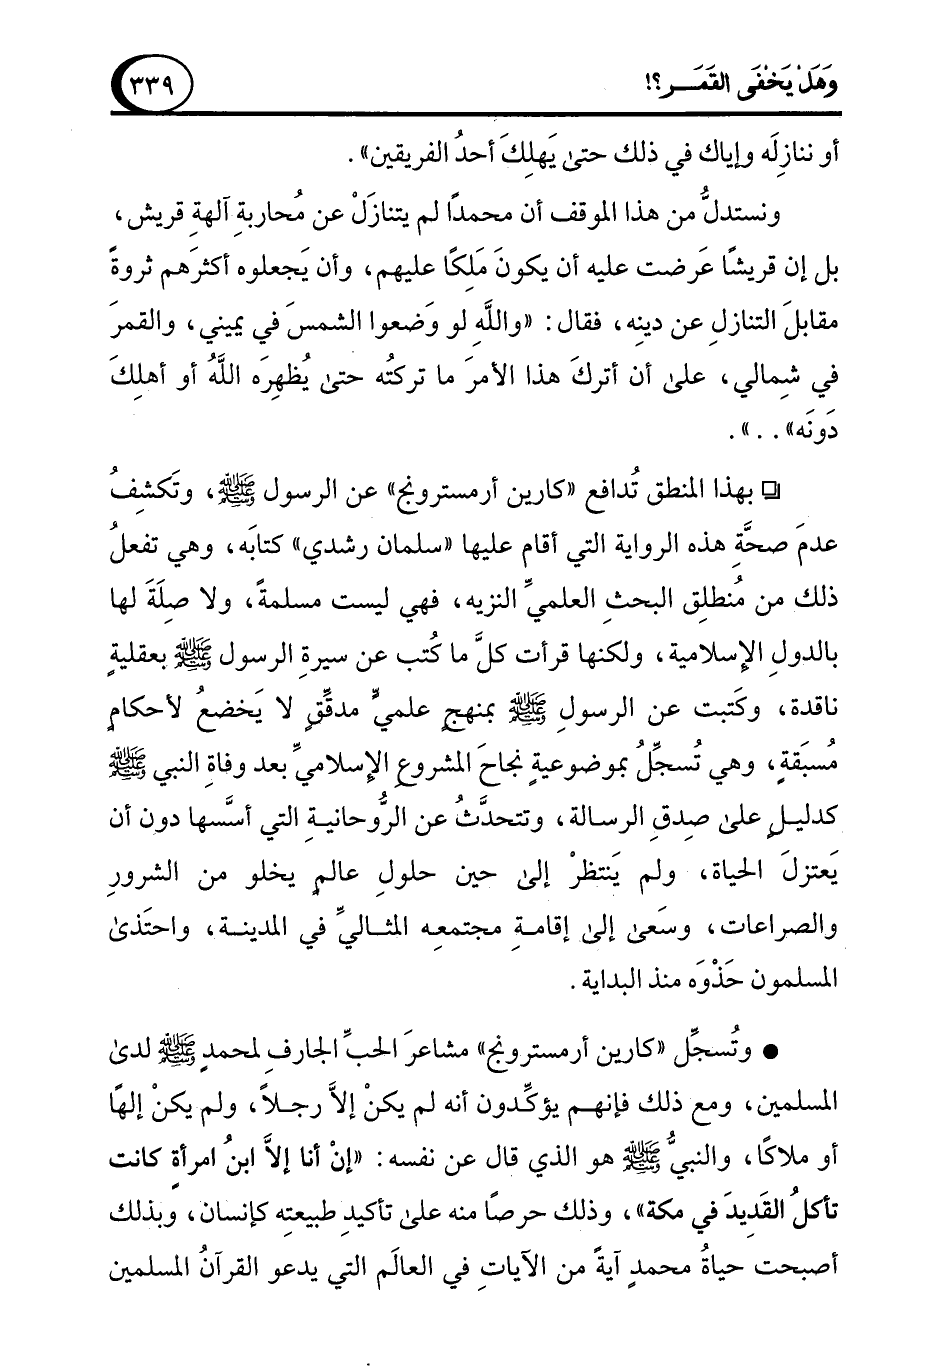 وَهَلْ يَخْفَى القَمَـــر؟!
٣٣٩
أو ننازِلَه وإياك في ذلك حتىٰ يَهلِكَ أحدُ الفريقين» .
ونستدلُّ من هذا الموقف أن محمدًا لم يتنازَلْ عن مُحاربةِ آلهةِ قريش ،
بل إن قريشًا عَرضت عليه أن يكونَ مَلِكًا عليهم، وأن يَجعلوه أكثرَهم ثروةً
مقابلَ التنازلِ عن دينِه، فقال: «واللَّهِ لو وَضعوا الشمسَ في يميني، والقمرَ
في شِمالي، علىٰ أن أتركَ هذا الأمرَ ما تركتُه حتىٰ يُظهِرَه اللَّهُ أو أهلِكَ
دَونَه» . . .» .
❏ بهذا المنطق تُدافع «كارين أرمسترونج» عن الرسول ﷺ، وتَكشفُ
عدمَ صحَّةِ هذه الرواية التي أقام عليها «سلمان رشدي» كتابَه، وهي تفعلُ
ذلك من مُنطلق البحثِ العلميِّ النزيه، فهي ليست مسلمةً، ولا صِلَةَ لها
بالدولِ الإسلامية، ولكنها قرأت كلَّ ما كُتب عن سيرةِ الرسول ﷺ بعقليةٍ
ناقدة، وكَتبت عن الرسولِ ﷺ بمنهجٍ علميٍّ مدقِّقٍ لا يَخضعُ لأحكامٍ
مُسبَقةٍ، وهي تُسجِّلُ بموضوعيةٍ نجاحَ المشروعِ الإسلاميِّ بعد وفاةِ النبي ﷺ
كدليلٍ علىٰ صِدقِ الرسالة، وتتحدَّثُ عن الرُّوحانيةِ التي أسَّسها دون أن
يَعتزلَ الحياة، ولم يَنتظرْ إلىٰ حين حلولِ عالمٍ يخلو من الشرورِ
والصراعات، وسَعىٰ إلىٰ إقامةِ مجتمعِه المثاليِّ في المدينة، واحتَذىٰ
المسلمون حَذْوَه منذ البداية .
● وتُسجِّل «كارين أرمسترونج» مشاعرَ الحبِّ الجارفِ لمحمدٍ ﷺ لدىٰ
المسلمين، ومع ذلك فإنهم يؤكِّدون أنه لم يكنْ إلاَّ رجلاً، ولم يكنْ إلهًا
أو ملاكًا، والنبيُّ ﷺ هو الذي قال عن نفسه: «إنْ أنا إلاَّ ابنُ امرأةٍ كانت
تأكلُ القَدِيدَ في مكة»، وذلك حرصًا منه علىٰ تأكيدِ طبيعتِه كإنسان، وبذلك
أصبحت حياةُ محمدٍ آيةً من الآياتِ في العالَم التي يدعو القرآنُ المسلمين